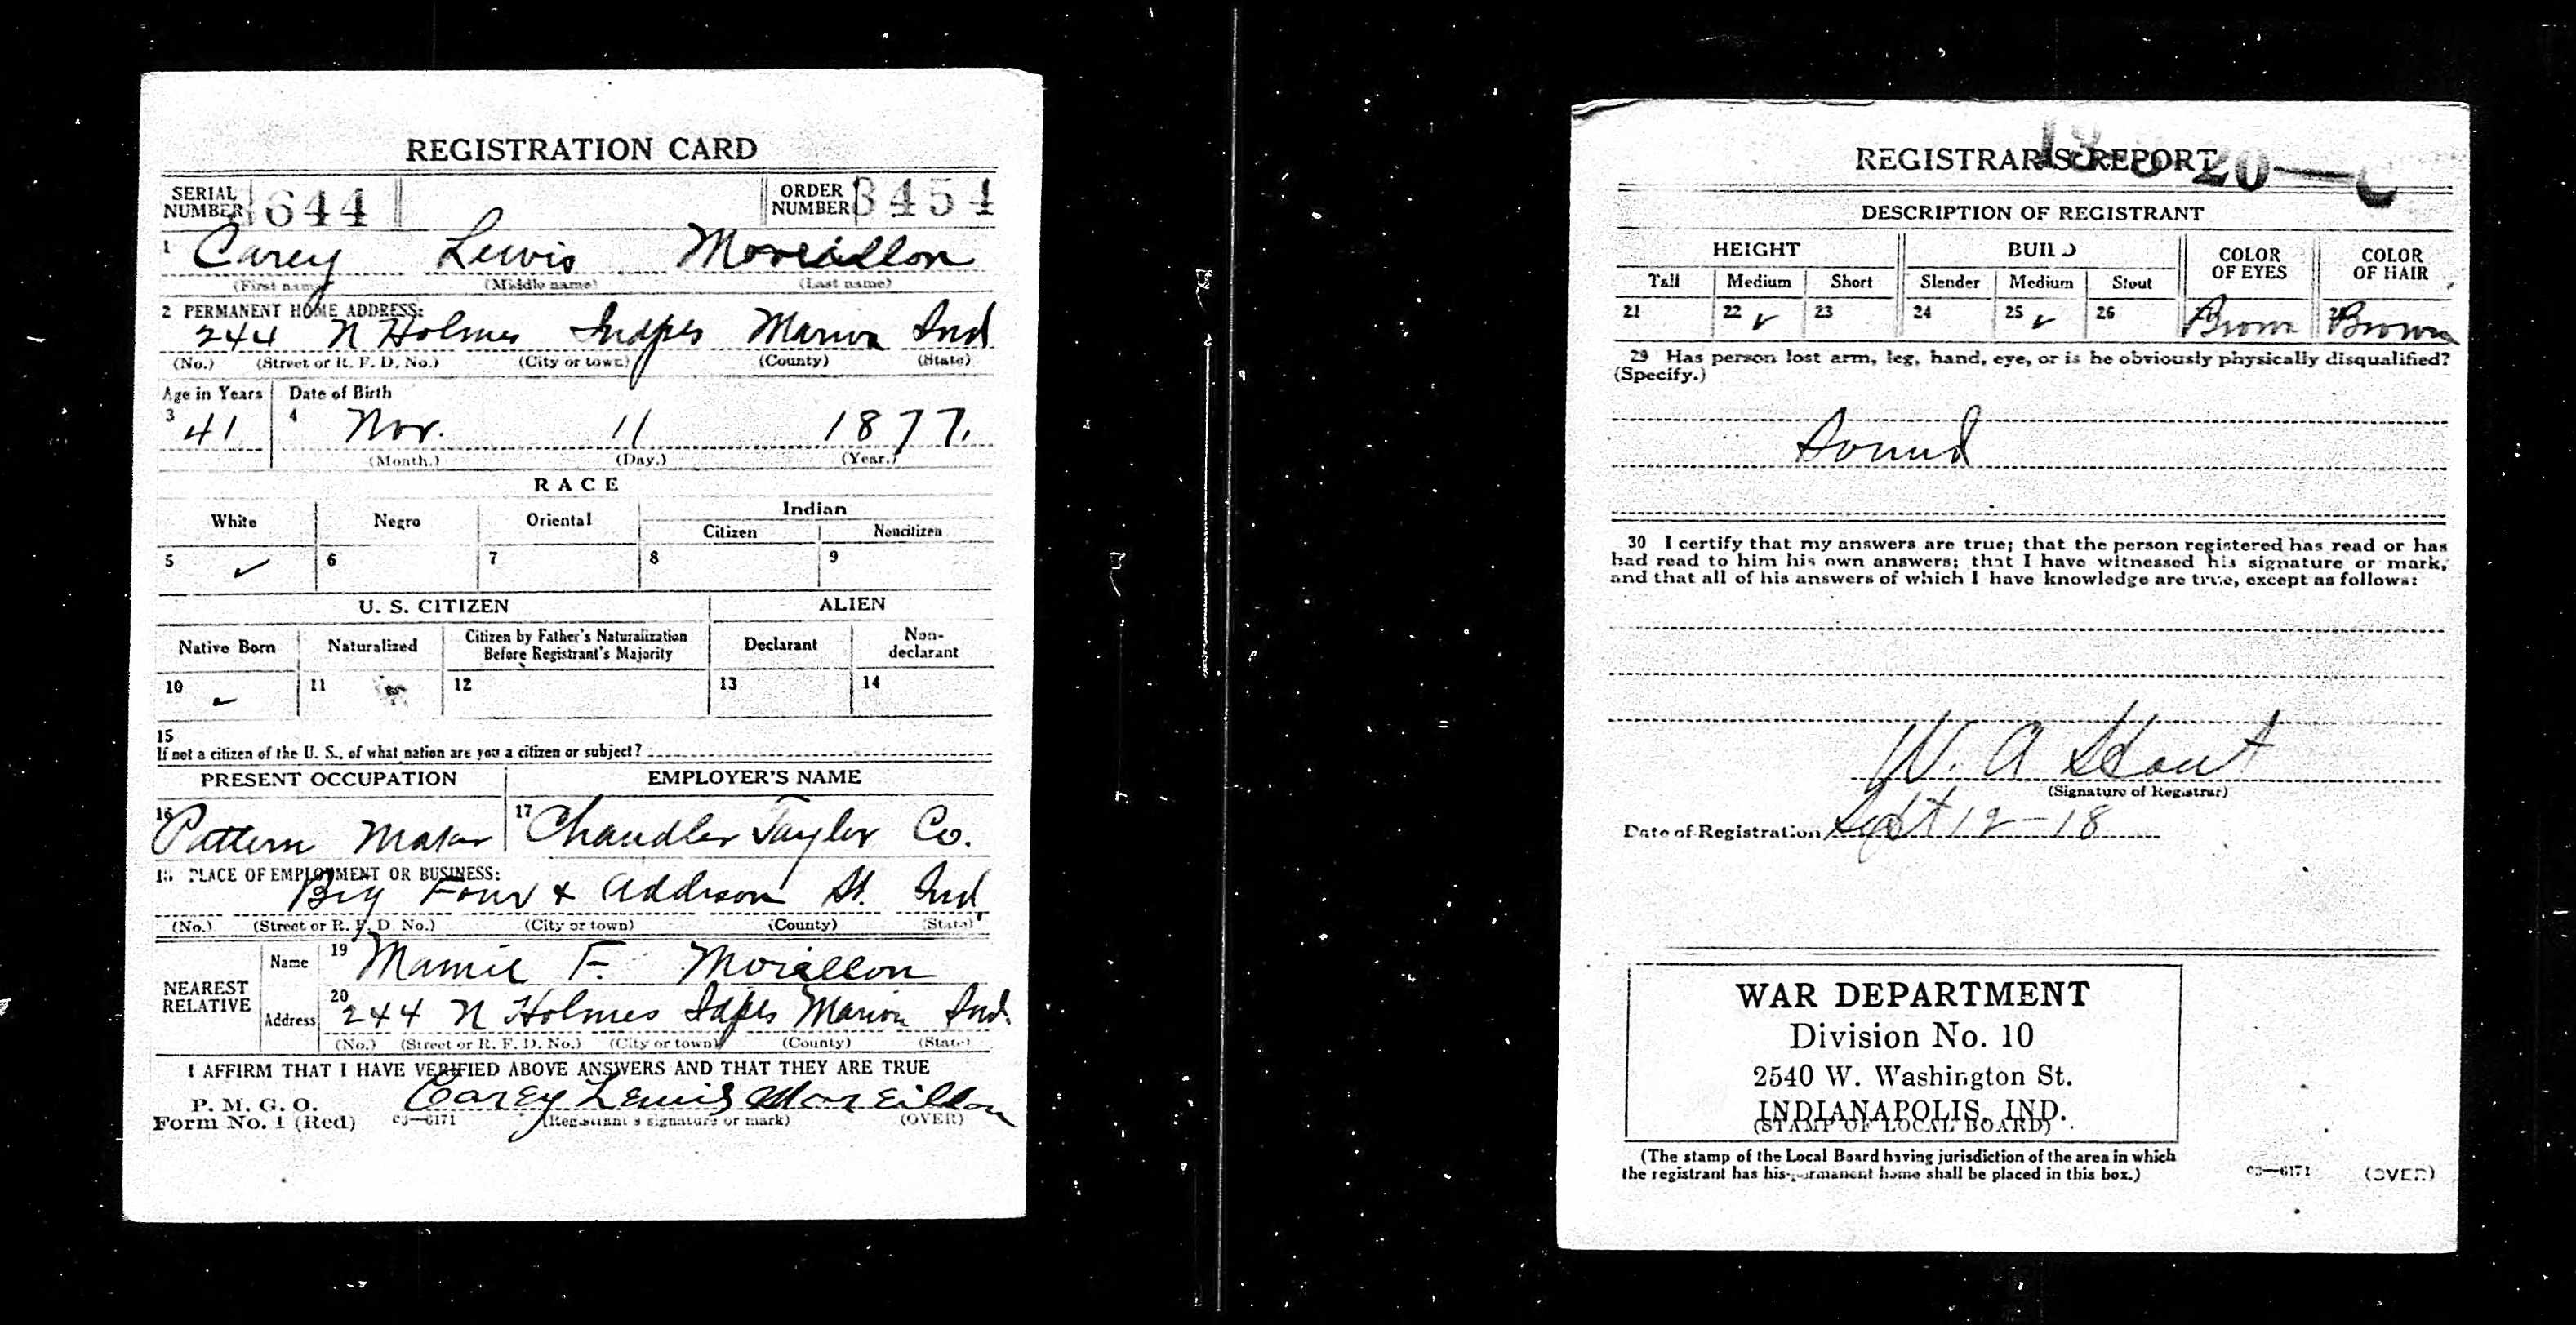 REGISTRATION CARD
SERIAL NUMBER 644 ORDER NUMBER 3454
1 Carey Lewis Moreillon
(First name) (Middle name) (Last name)
2 PERMANENT HOME ADDRESS:
244 N Holmes Indpls Marion Ind
(No.) (Street or R. F. D. No.) (City or town) (County) (State)
Age in Years Date of Birth
3 41 4 Nov. 11 1877.
(Month.) (Day.) (Year.)
RACE
White Negro Oriental Indian
Citizen Noncitizen
5 ✓ 6 7 8 9
U. S. CITIZEN ALIEN
Native Born Naturalized Citizen by Father's Naturalization Before Registrant's Majority Declarant Non-declarant
10 ✓ 11 12 13 14
15
If not a citizen of the U. S., of what nation are you a citizen or subject?
PRESENT OCCUPATION EMPLOYER'S NAME
16 Pattern Maker 17 Chandler Taylor Co.
18 PLACE OF EMPLOYMENT OR BUSINESS:
Big Four & Addison St. Ind
(No.) (Street or R. F. D. No.) (City or town) (County) (State)
NEAREST RELATIVE
Name 19 Mamie F. Moreillon
Address 20 244 N Holmes Idpls Marion Ind.
(No.) (Street or R. F. D. No.) (City or town) (County) (State)
I AFFIRM THAT I HAVE VERIFIED ABOVE ANSWERS AND THAT THEY ARE TRUE
P. M. G. O.
Form No. 1 (Red) 03—6171 Carey Lewis Moreillon
(Registrant's signature or mark) (OVER)
REGISTRAR'S REPORT
DESCRIPTION OF REGISTRANT
HEIGHT BUILD COLOR OF EYES COLOR OF HAIR
Tall Medium Short Slender Medium Stout
21 22 ✓ 23 24 25 ✓ 26 Brown Brown
29 Has person lost arm, leg, hand, eye, or is he obviously physically disqualified?
(Specify.)
Sound
30 I certify that my answers are true; that the person registered has read or has
had read to him his own answers; that I have witnessed his signature or mark,
and that all of his answers of which I have knowledge are true, except as follows:
W. A Stout
(Signature of Registrar)
Date of Registration Sept 12-18
WAR DEPARTMENT
Division No. 10
2540 W. Washington St.
INDIANAPOLIS, IND.
(STAMP OF LOCAL BOARD)
(The stamp of the Local Board having jurisdiction of the area in which
the registrant has his permanent home shall be placed in this box.)
03—6171 (OVER)